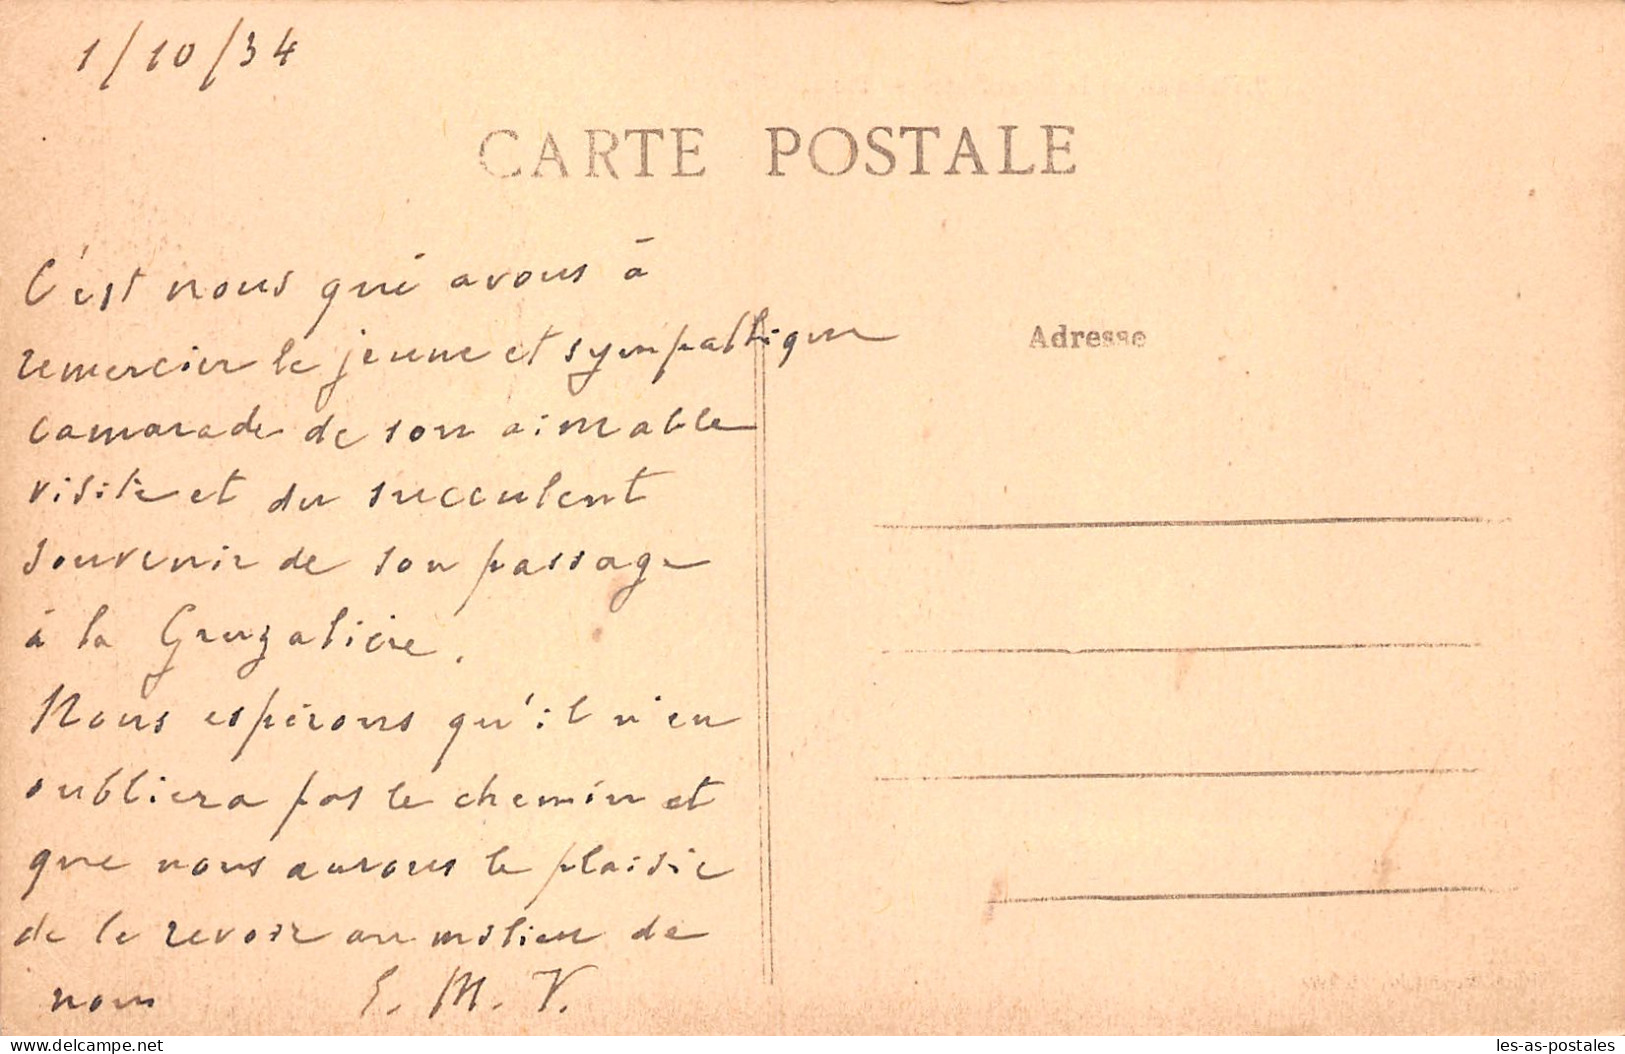 1/10/34
CARTE POSTALE
C'est nous qui avons à
remercier le jeune et sympathique
Adresse
camarade de son aimable
visite et du succulent
souvenir de son passage
à la Gruzalière.
Nous espérons qu'il n'en
oubliera pas le chemin et
que nous aurons le plaisir
de le revoir au milieu de
nous E. M. V.
delcampe.net
les-as-postales